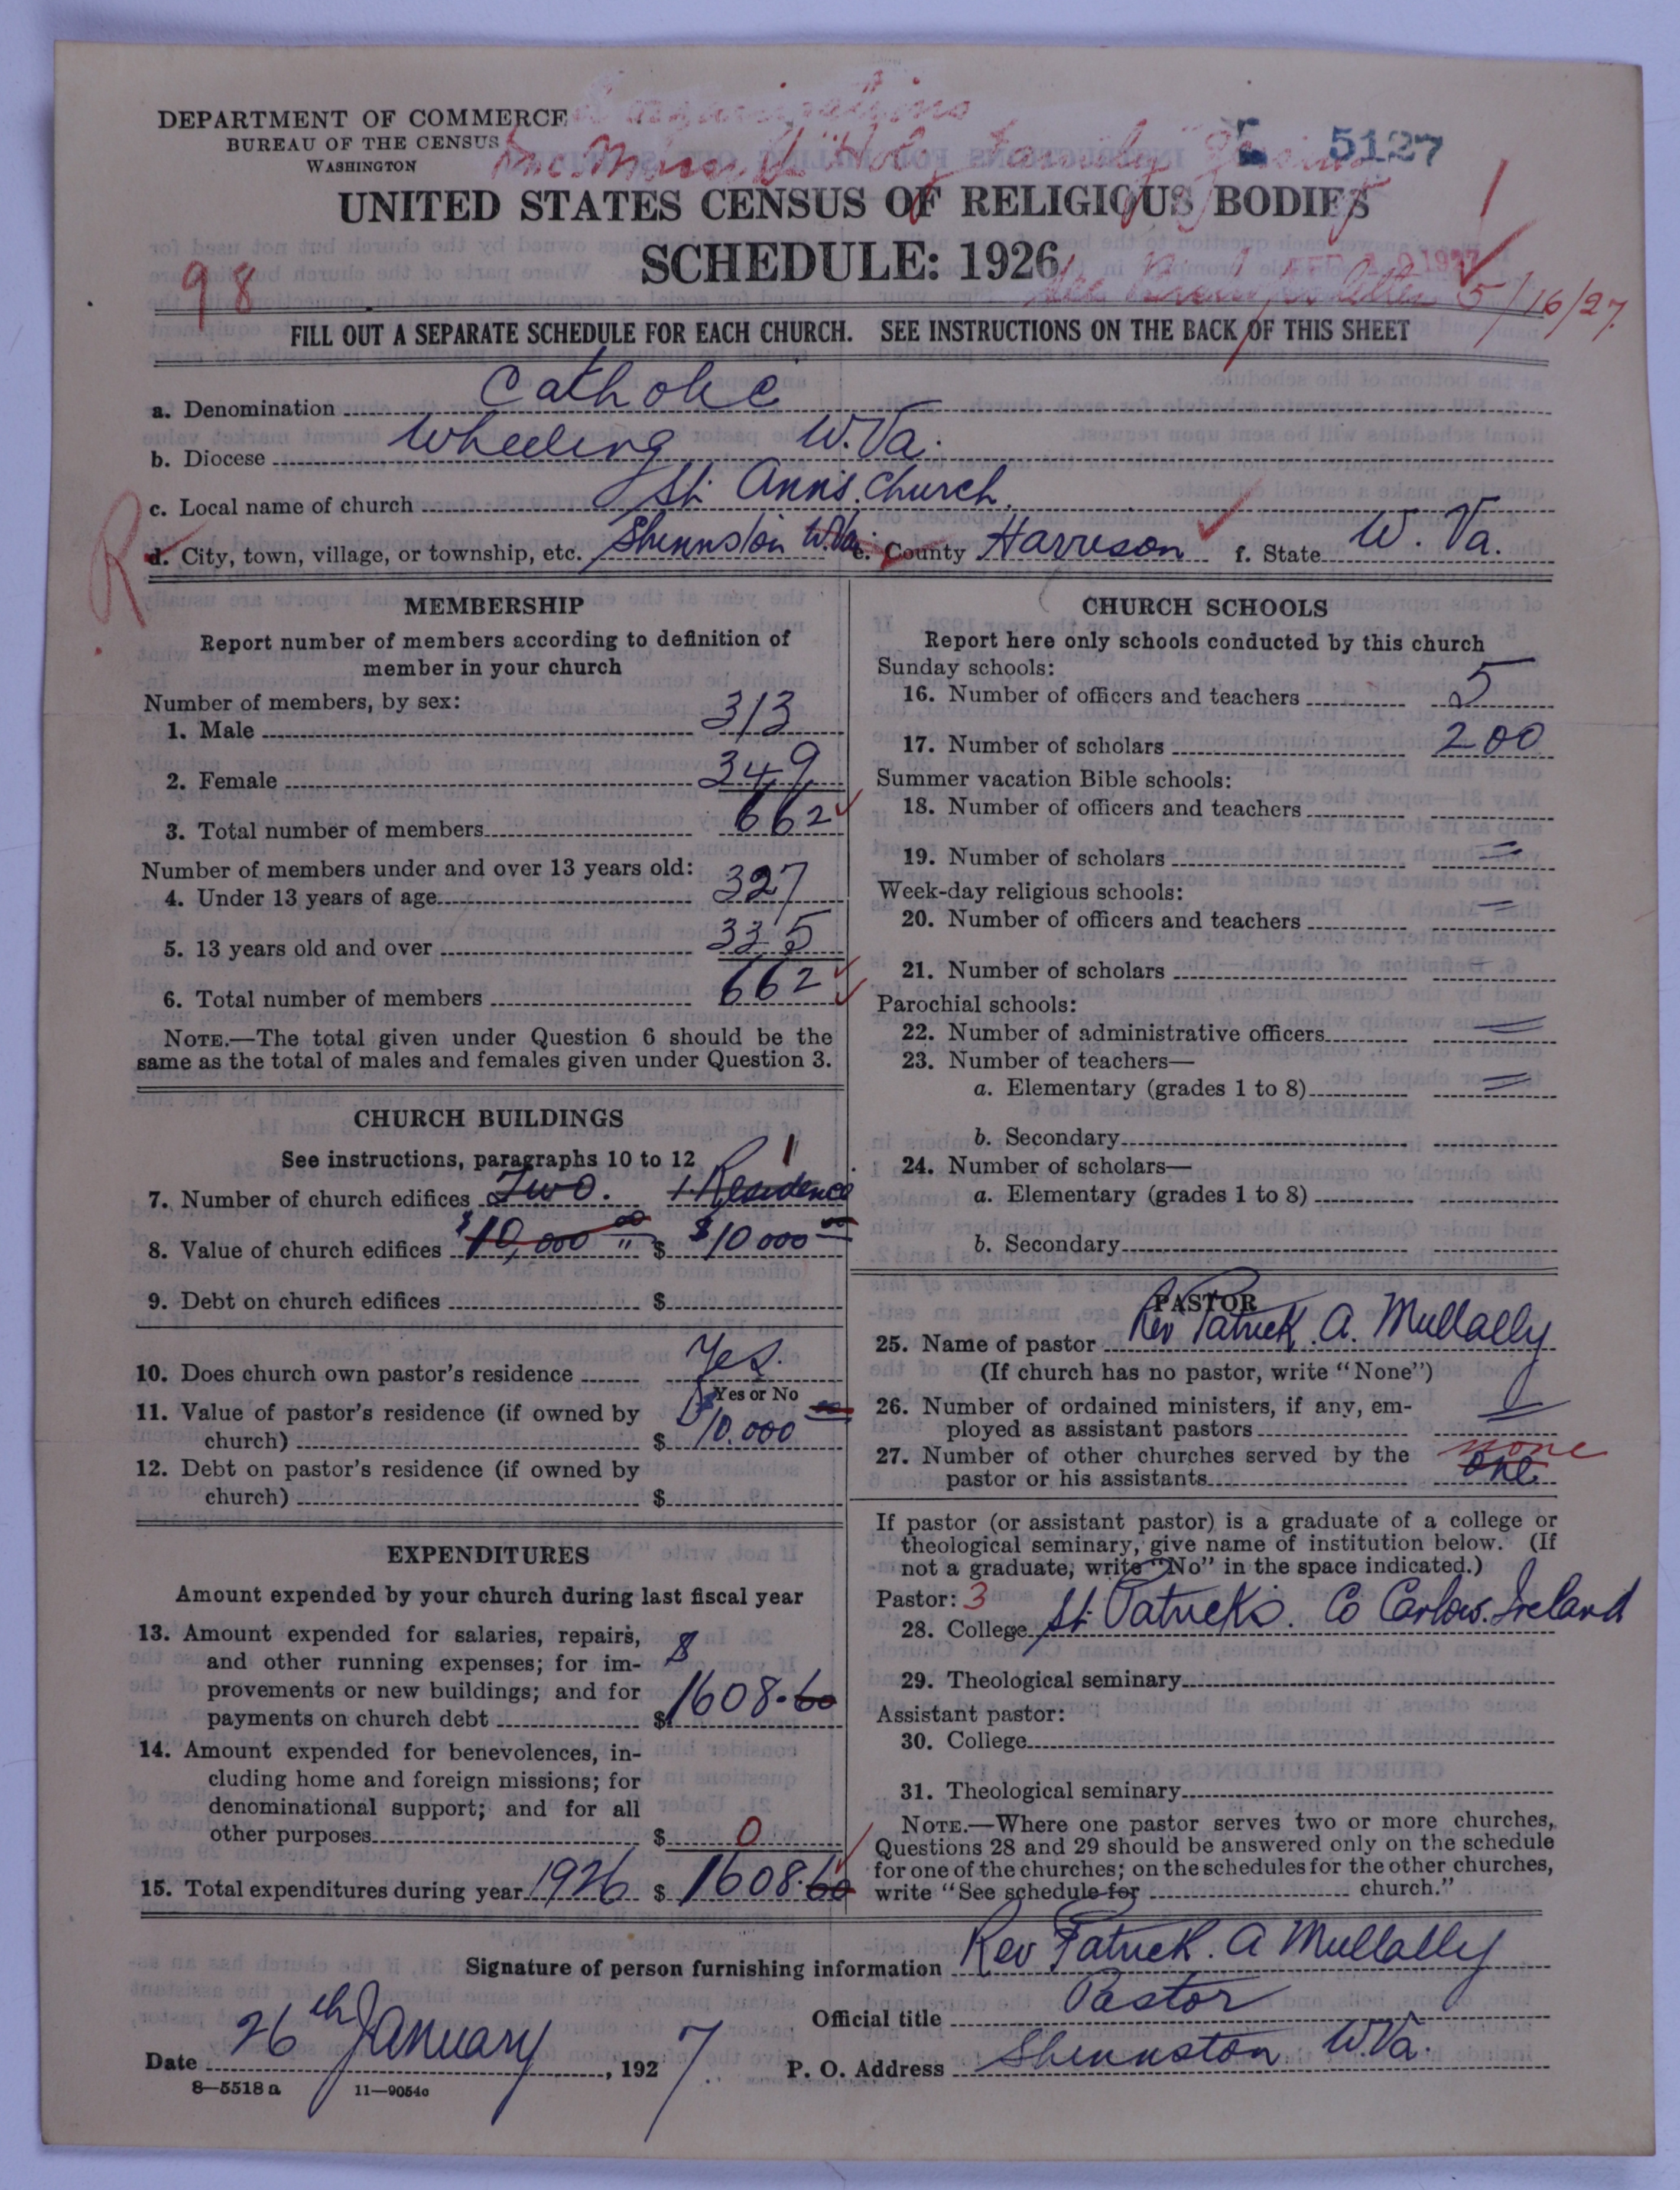 DEPARTMENT OF COMMERCE
BUREAU OF THE CENSUS
WASHINGTON
5127
UNITED STATES CENSUS OF RELIGIOUS BODIES
SCHEDULE: 1926
98
5/16/27
FILL OUT A SEPARATE SCHEDULE FOR EACH CHURCH. SEE INSTRUCTIONS ON THE BACK OF THIS SHEET
a. Denomination Catholic
b. Diocese Wheeling W. Va.
c. Local name of church St. Ann's Church
R d. City, town, village, or township, etc. Shinnston W.Va. e. County Harrison f. State W. Va.
MEMBERSHIP
Report number of members according to definition of
member in your church
Number of members, by sex:
1. Male 313
2. Female 349
3. Total number of members 662
Number of members under and over 13 years old:
4. Under 13 years of age 327
5. 13 years old and over 335
6. Total number of members 662
NOTE.—The total given under Question 6 should be the
same as the total of males and females given under Question 3.
CHURCH BUILDINGS
See instructions, paragraphs 10 to 12 1
7. Number of church edifices Two. 1 Residence
8. Value of church edifices $10,000 00 $ $10000 00
9. Debt on church edifices $
10. Does church own pastor's residence Yes.
Yes or No
11. Value of pastor's residence (if owned by
church) $ $10.000 00
12. Debt on pastor's residence (if owned by
church) $
EXPENDITURES
Amount expended by your church during last fiscal year
13. Amount expended for salaries, repairs,
and other running expenses; for im-
provements or new buildings; and for
payments on church debt $ 1608.60
14. Amount expended for benevolences, in-
cluding home and foreign missions; for
denominational support; and for all
other purposes $ 0
15. Total expenditures during year 1926 $ 1608.60
CHURCH SCHOOLS
Report here only schools conducted by this church
Sunday schools:
16. Number of officers and teachers 5
17. Number of scholars 200
Summer vacation Bible schools:
18. Number of officers and teachers
19. Number of scholars
Week-day religious schools:
20. Number of officers and teachers
21. Number of scholars
Parochial schools:
22. Number of administrative officers
23. Number of teachers—
a. Elementary (grades 1 to 8)
b. Secondary
24. Number of scholars—
a. Elementary (grades 1 to 8)
b. Secondary
PASTOR
25. Name of pastor Rev Patrick. A. Mullally
(If church has no pastor, write "None")
26. Number of ordained ministers, if any, em-
ployed as assistant pastors
27. Number of other churches served by the none
pastor or his assistants one
If pastor (or assistant pastor) is a graduate of a college or
theological seminary, give name of institution below. (If
not a graduate, write "No" in the space indicated.)
Pastor: 3
28. College St. Patricks. Co Carlow. Ireland
29. Theological seminary
Assistant pastor:
30. College
31. Theological seminary
NOTE.—Where one pastor serves two or more churches,
Questions 28 and 29 should be answered only on the schedule
for one of the churches; on the schedules for the other churches,
write "See schedule for church."
Signature of person furnishing information Rev Patrick. A Mullally
Official title Pastor
Date 26th January, 1927. P. O. Address Shinnston W.Va.
8—5518 a 11—9054a